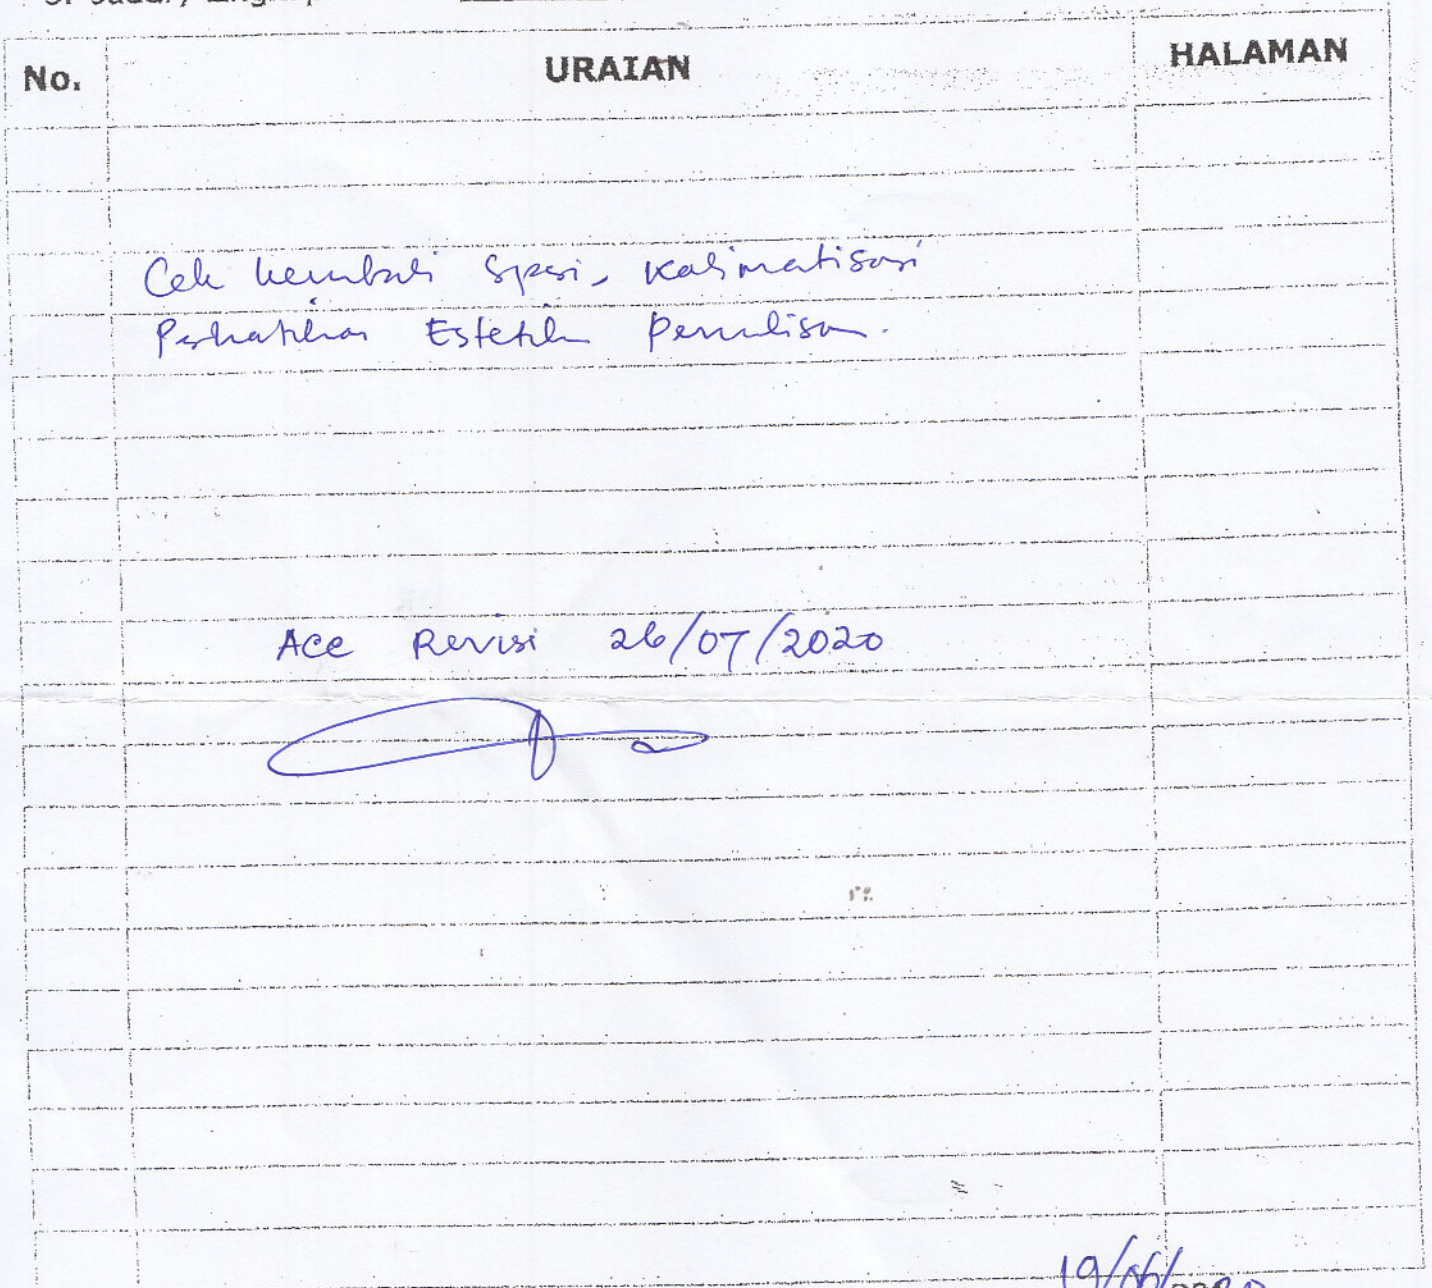 No. URAIAN HALAMAN
Cek kembali Spasi, Kalimatisasi
Perhatikan Estetika Penulisan.
Acc Revisi 26/07/2020
19/06/